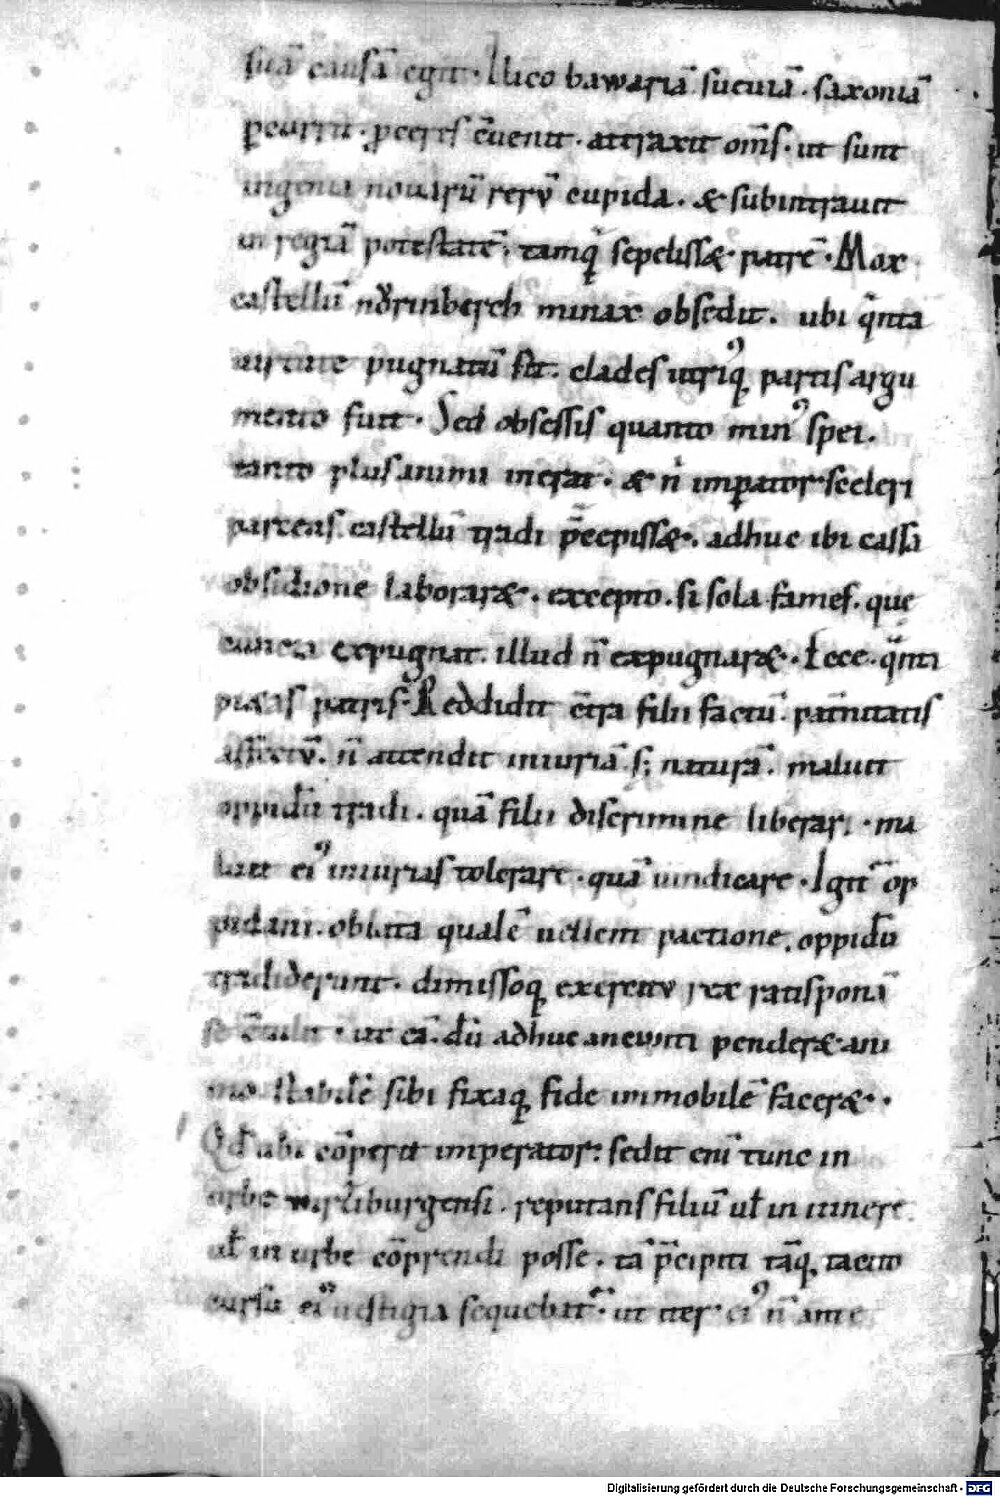 suā causā egit. Ilico bawariā sueuiā. saxoniā
ꝑcurrit. ꝓceres ↄuenit. attraxit om̄s. ut sunt
ingenia nouarū rerū cupida. & subintrauit
in regiā potestatē. tamq̄ sepelisset patrē. Mox
castellū nǒrinberch minax obsedit. ubi q̄nta
uirtute pugnatū sit. clades utriq; partis argu
mento fuit. Sed obsessis quanto min᾿ spei.
tanto plus animi inerat. & n̄ imꝑator sceleri
parcens. castellū tradi p̄cepisset. adhuc ibi cassa
obsidione laboraret. excepto. si sola fames. que
cuncta expugnat. illud n̄ expugnaret. Ecce. q̄nti
pietas patris. Reddidit ↄtra filii factū. pat̄nitatis
affectū. n̄ attendit iniuriā. s; naturā. maluit
oppidū tradi. quā filii discrimine liberari. ma
luit ei᾿ iniurias tolerare. quā uindicare. Igit̄ op
pidani. oblata qualē uellent pactione. oppidū
tradiderunt. dimissoq; exercitu rex ratisponā
se ↄtulit. ut eā. dū adhuc ancipiti penderet ani
mo. stabilē sibi fixaq; fide immobilē faceret.
Qđ ubi cōperit imperator. sedit enī tunc in
urbe wirziburgensi. reputans filiū uł in itinere
uł in urbe cōprendi posse. tā p̄cipiti tāq; tacito
cursu ei᾿ uestigia sequebat̄. ut iter ei᾿ n̄ ante